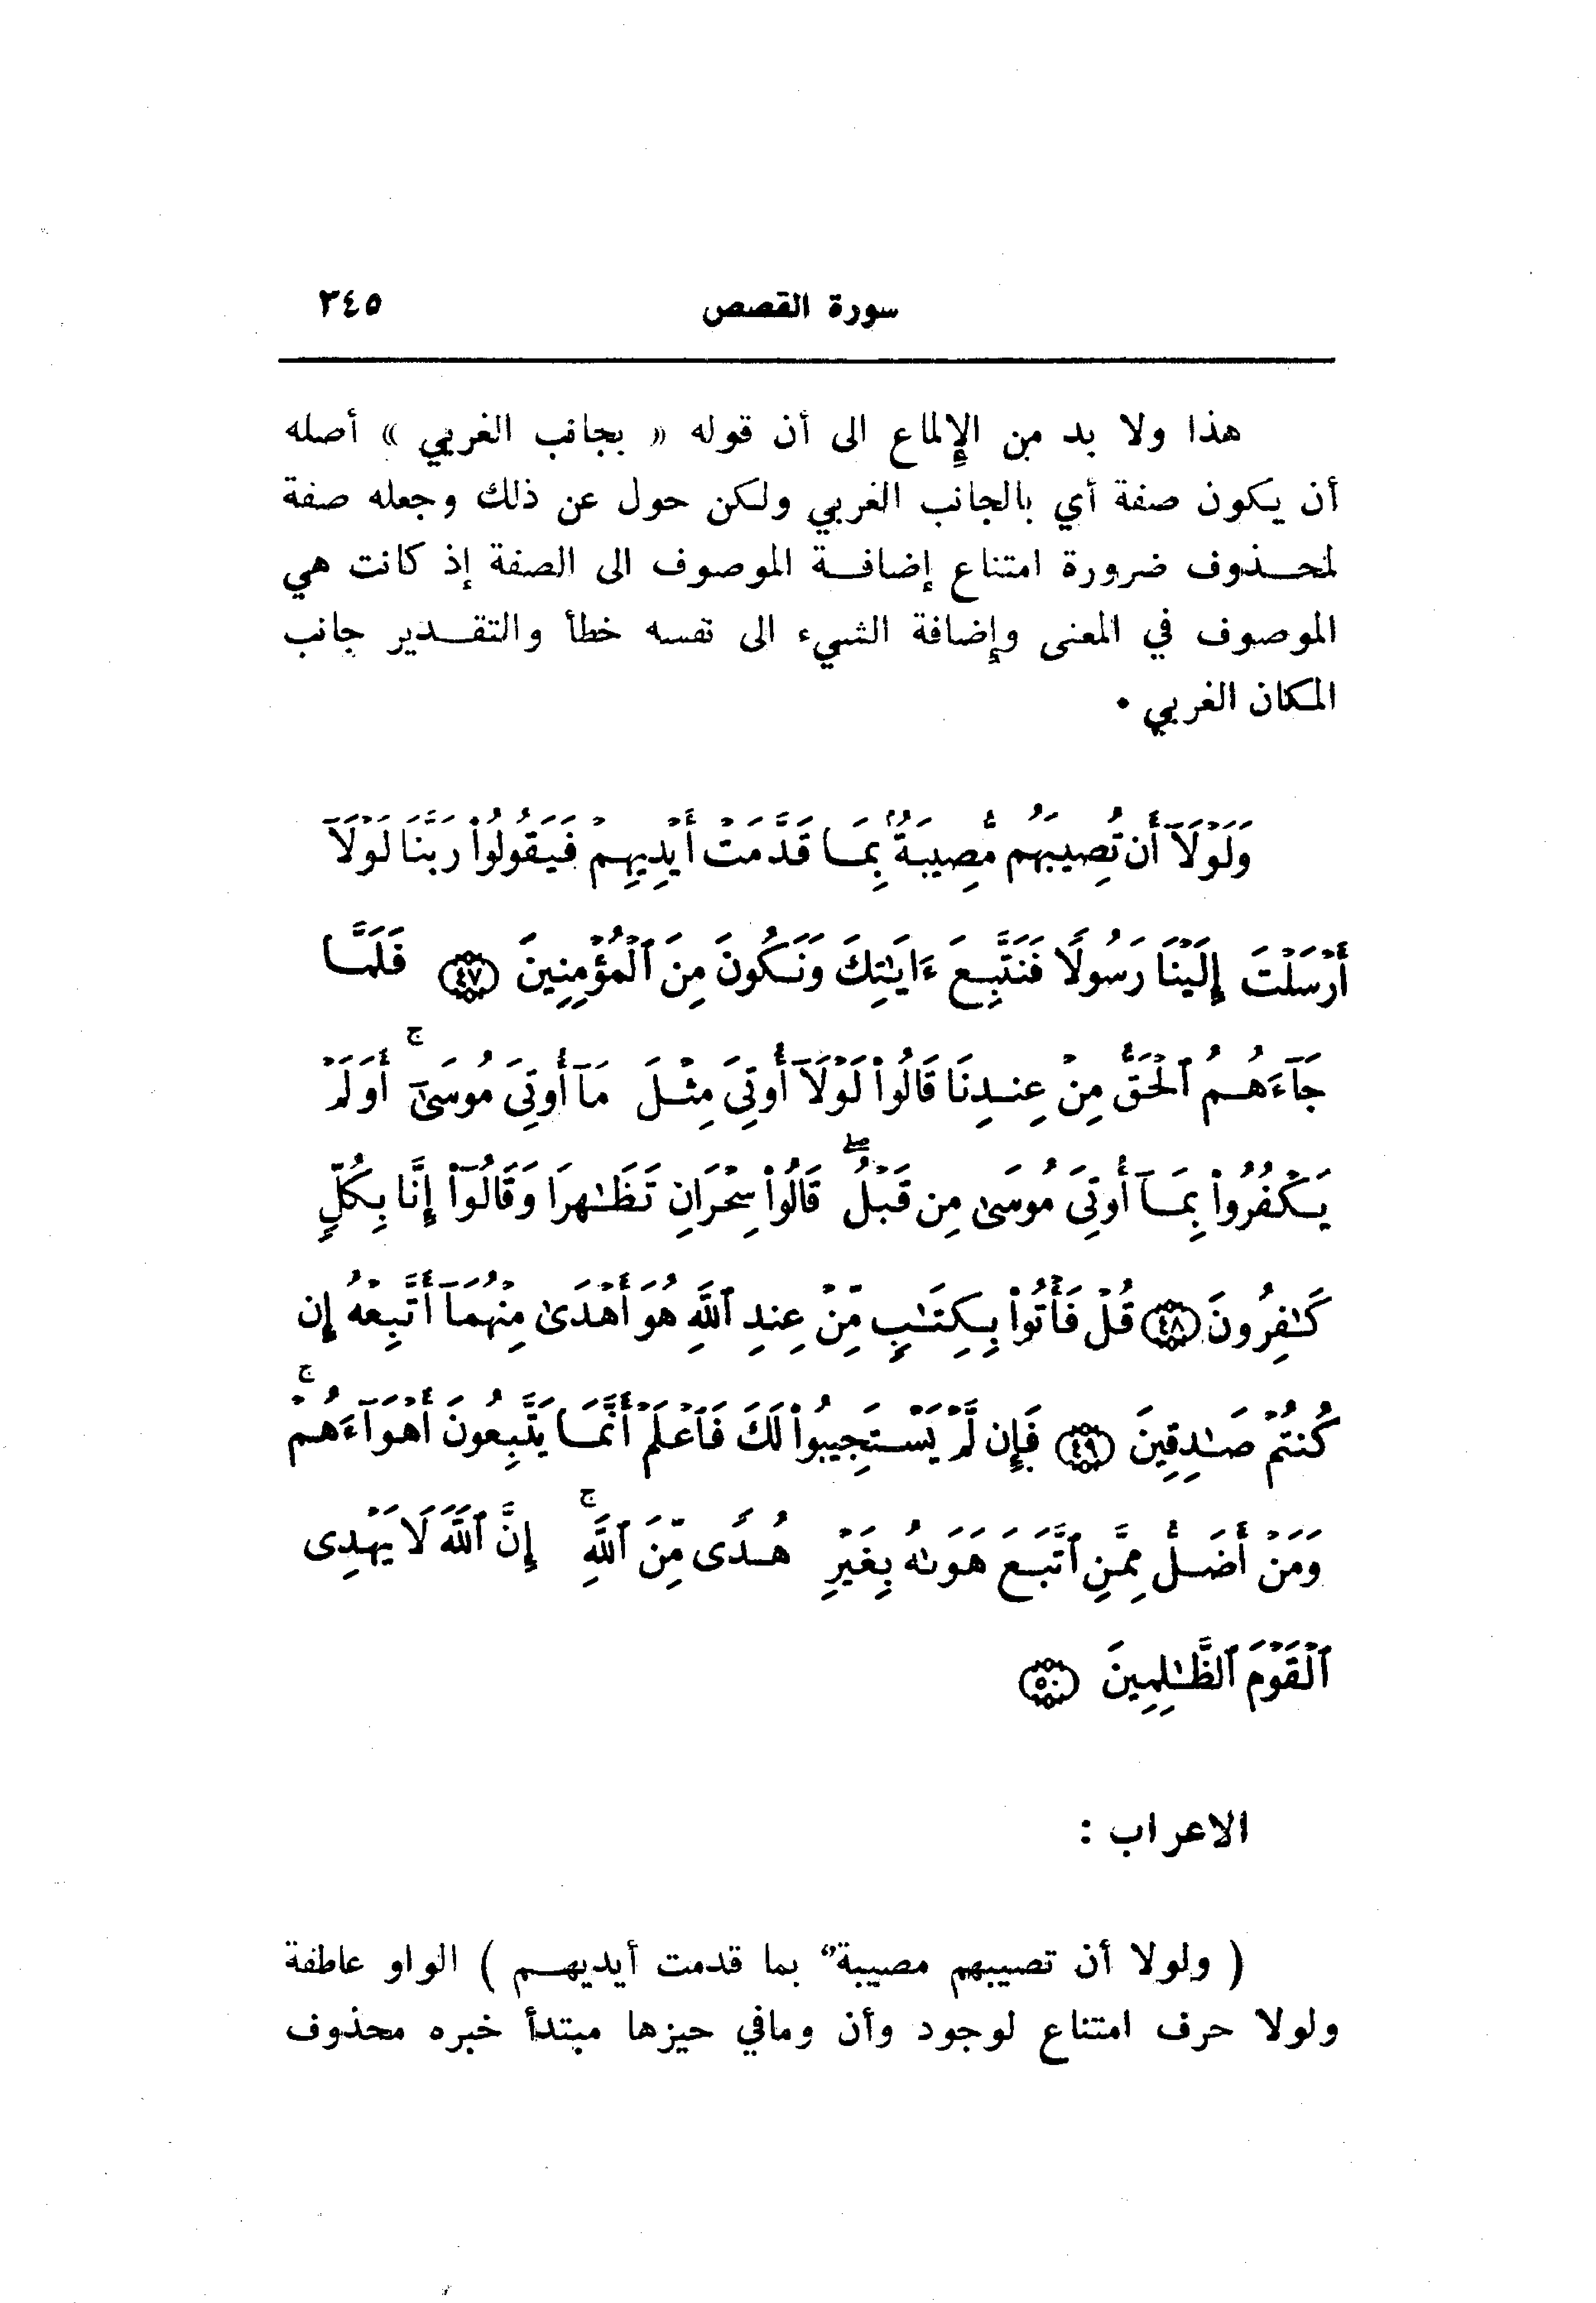 سورة القصص ٣٤٥
هذا ولا بد من الإلماع الى أن قوله « بجانب الغربي » أصله
أن يكون صفة أي بالجانب الغربي ولكن حول عن ذلك وجعله صفة
لمحــذوف ضرورة امتناع إضافــة الموصوف الى الصفة إذ كانت هي
الموصوف في المعنى وإضافة الشيء الى نفسه خطأ والتقــدير جانب
المكان الغربي ٠
وَلَوْلَآ أَن تُصِيبَهُم مُّصِيبَةٌۢ بِمَا قَدَّمَتْ أَيْدِيهِمْ فَيَقُولُوا۟ رَبَّنَا لَوْلَآ
أَرْسَلْتَ إِلَيْنَا رَسُولًا فَنَتَّبِعَ ءَايَٰتِكَ وَنَكُونَ مِنَ ٱلْمُؤْمِنِينَ ﴿٤٧﴾ فَلَمَّا
جَآءَهُمُ ٱلْحَقُّ مِنْ عِندِنَا قَالُوا۟ لَوْلَآ أُوتِىَ مِثْلَ مَآ أُوتِىَ مُوسَىٰٓ ۚ أَوَلَمْ
يَكْفُرُوا۟ بِمَآ أُوتِىَ مُوسَىٰ مِن قَبْلُ ۖ قَالُوا۟ سِحْرَانِ تَظَٰهَرَا وَقَالُوٓا۟ إِنَّا بِكُلٍّ
كَٰفِرُونَ ﴿٤٨﴾ قُلْ فَأْتُوا۟ بِكِتَٰبٍ مِّنْ عِندِ ٱللَّهِ هُوَ أَهْدَىٰ مِنْهُمَآ أَتَّبِعْهُ إِن
كُنتُمْ صَٰدِقِينَ ﴿٤٩﴾ فَإِن لَّمْ يَسْتَجِيبُوا۟ لَكَ فَٱعْلَمْ أَنَّمَا يَتَّبِعُونَ أَهْوَآءَهُمْ ۚ
وَمَنْ أَضَلُّ مِمَّنِ ٱتَّبَعَ هَوَىٰهُ بِغَيْرِ هُدًى مِّنَ ٱللَّهِ ۚ إِنَّ ٱللَّهَ لَا يَهْدِى
ٱلْقَوْمَ ٱلظَّٰلِمِينَ ﴿٥٠﴾
الاعراب :
( ولولا أن تصيبهم مصيبةٌ بما قدمت أيديهــم ) الواو عاطفة
ولولا حرف امتناع لوجود وأن ومافي حيزها مبتدأ خبره محذوف